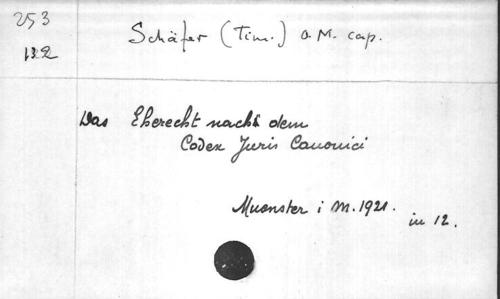 253
132
Schäfer (Tim.) O.M. cap.
Das Eherecht nach dem
Codex Juris Canonici
Muenster i M. 1921.
in 12.